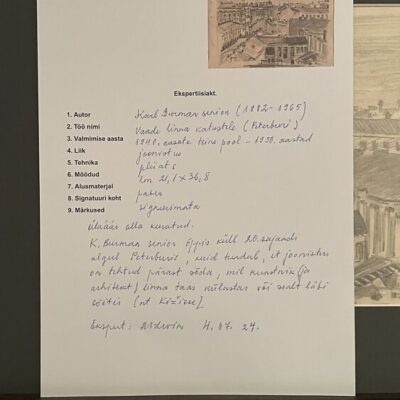 Ekspertiisiakt.
1. Autor Karl Burman senior (1882-1965)
2. Töö nimi Vaade linna katustele (Peterburi)
3. Valmimise aasta 1940. aasate teine pool - 1950. aastad
4. Liik joonistus
5. Tehnika pliiats
6. Mõõdud cm 21,1 x 36,8
7. Alusmaterjal paber
8. Signatuuri koht signeerimata
9. Märkused
ülaäär alla keeratud.
K. Burman senior õppis küll 20. sajandi
algul Peterburis, kuid tundub, et joonistus
on tehtud pärast sõda, mil kunstnik (ja
arhitekt) linna taas külastas või sealt läbi
sõitis
Ekspert: 4. 07. 24.